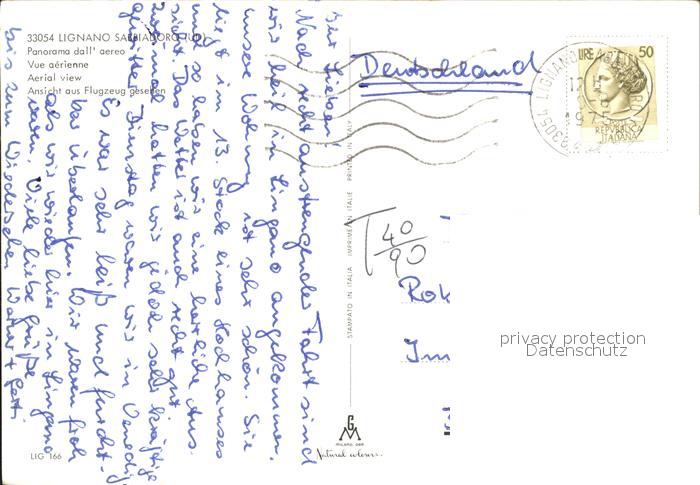 33054 LIGNANO SABBIADORO (UD)
Panorama dall' aereo
Vue aérienne
Aerial view
Ansicht aus Flugzeug gesehen
Ihr Lieben!
Nach recht anstrengender Fahrt sind
wir heiß in Lingano angekommen.
unsere Wohnung ist sehr schön. Sie
liegt im 13. Stock eines Hochhauses
und so haben wir eine herrliche Aus-
sicht. Das Wetter ist auch recht gut.
hatten wir jedoch sehr kräftige
Gewitter Dienstag waren wir in Venedig
Es war sehr heiß und furcht-
bar überlaufen. Wir waren froh
als wir wieder hier in Lingano
waren. Viele liebe Grüße
bis zum Wiedersehen Werner + Gert.
LIG 166
STAMPATO IN ITALIA IMPRIMÉ EN ITALIE PRINTED IN ITALY
MILANO
Natural colours
Deutschland
LIRE 50
REPVBBLICA
ITALIANA
33054 LIGNANO SABBIADORO
T 40/90
Rok
Im
privacy protection
Datenschutz